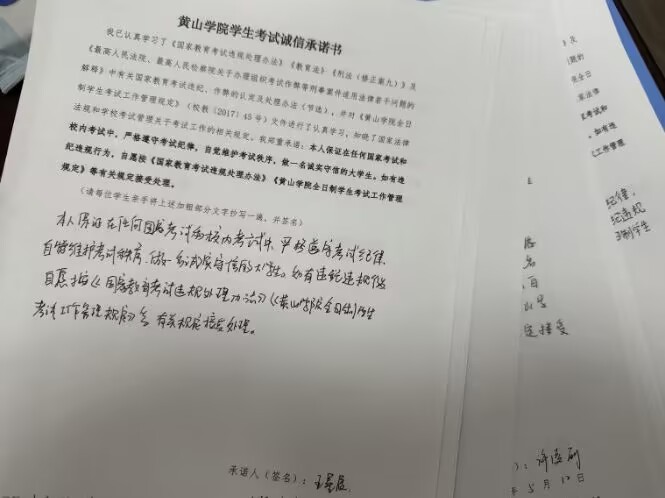 黄山学院学生考试诚信承诺书
我已认真学习了《国家教育考试违规处理办法》《教育法》《刑法（修正案九）》及
《最高人民法院、最高人民检察院关于办理组织考试作弊等刑事案件适用法律若干问题的
解释》中有关国家教育考试违纪、作弊的认定及处理办法（节选），并对《黄山学院全日
制学生考试工作管理规定》（校教〔2017〕45号）文件进行了认真学习，知晓了国家法律
法规和学校考试管理关于考试工作的相关规定。我郑重承诺：本人保证在任何国家考试和
校内考试中，严格遵守考试纪律，自觉维护考试秩序，做一名诚实守信的大学生。如有违
纪违规行为，自愿按《国家教育考试违规处理办法》《黄山学院全日制学生考试工作管理
规定》等有关规定接受处理。
（请每位学生亲手将上述加粗部分文字抄写一遍，并签名）
本人保证在任何国家考试和校内考试中，严格遵守考试纪律，
自觉维护考试秩序，做一名诚实守信的大学生。如有违纪违规行
自愿按《国家教育考试违规处理办法》《黄山学院全日制学生
考试工作管理规定》等有关规定接受处理。
承诺人（签名）：王
及
题的
全日
家法律
考试和
如有违
工作管理
纪律，
纪违规
日制学生
名
接受
）：许
年5月12日